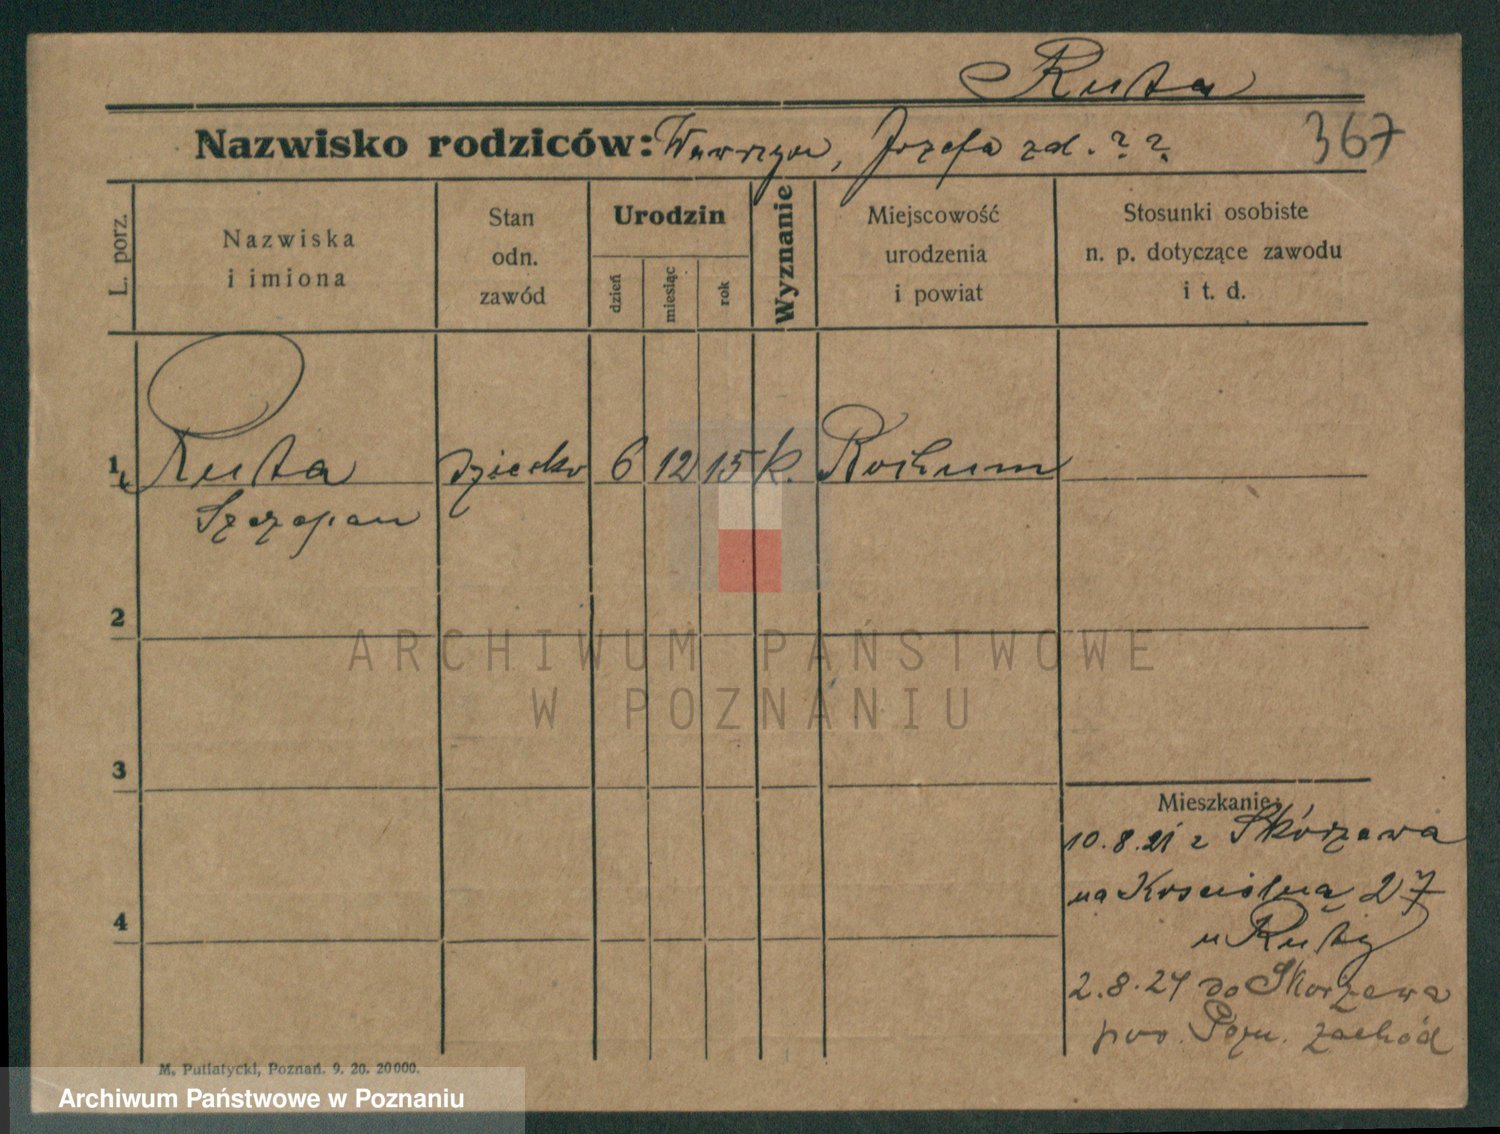 Ruta
Nazwisko rodziców: Wawrzyn, Józefa zd. ? ?
367
L. porz.
Nazwiska
i imiona
Stan
odn.
zawód
Urodzin
dzień
miesiąc
rok
Wyznanie
Miejscowość
urodzenia
i powiat
Stosunki osobiste
n. p. dotyczące zawodu
i t. d.
1 Ruta dziecko 6 12 15 k. Bochum
Szczepan
2
ARCHIWUM PAŃSTWOWE
W POZNANIU
3
Mieszkanie:
10.8.21 z Skórzewa
na Kościelną 27
u Ruty
4
2.8.24 do Skorzewa
pow. Pozn. zachód
M. Putiatycki, Poznań. 9. 20. 20000.
Archiwum Państwowe w Poznaniu